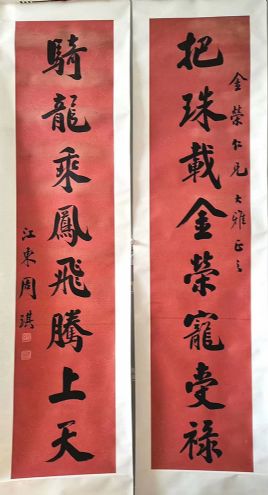 金榮仁兄大雅正之
把珠載金榮寵受祿
騎龍乘鳳飛騰上天
江東周琪